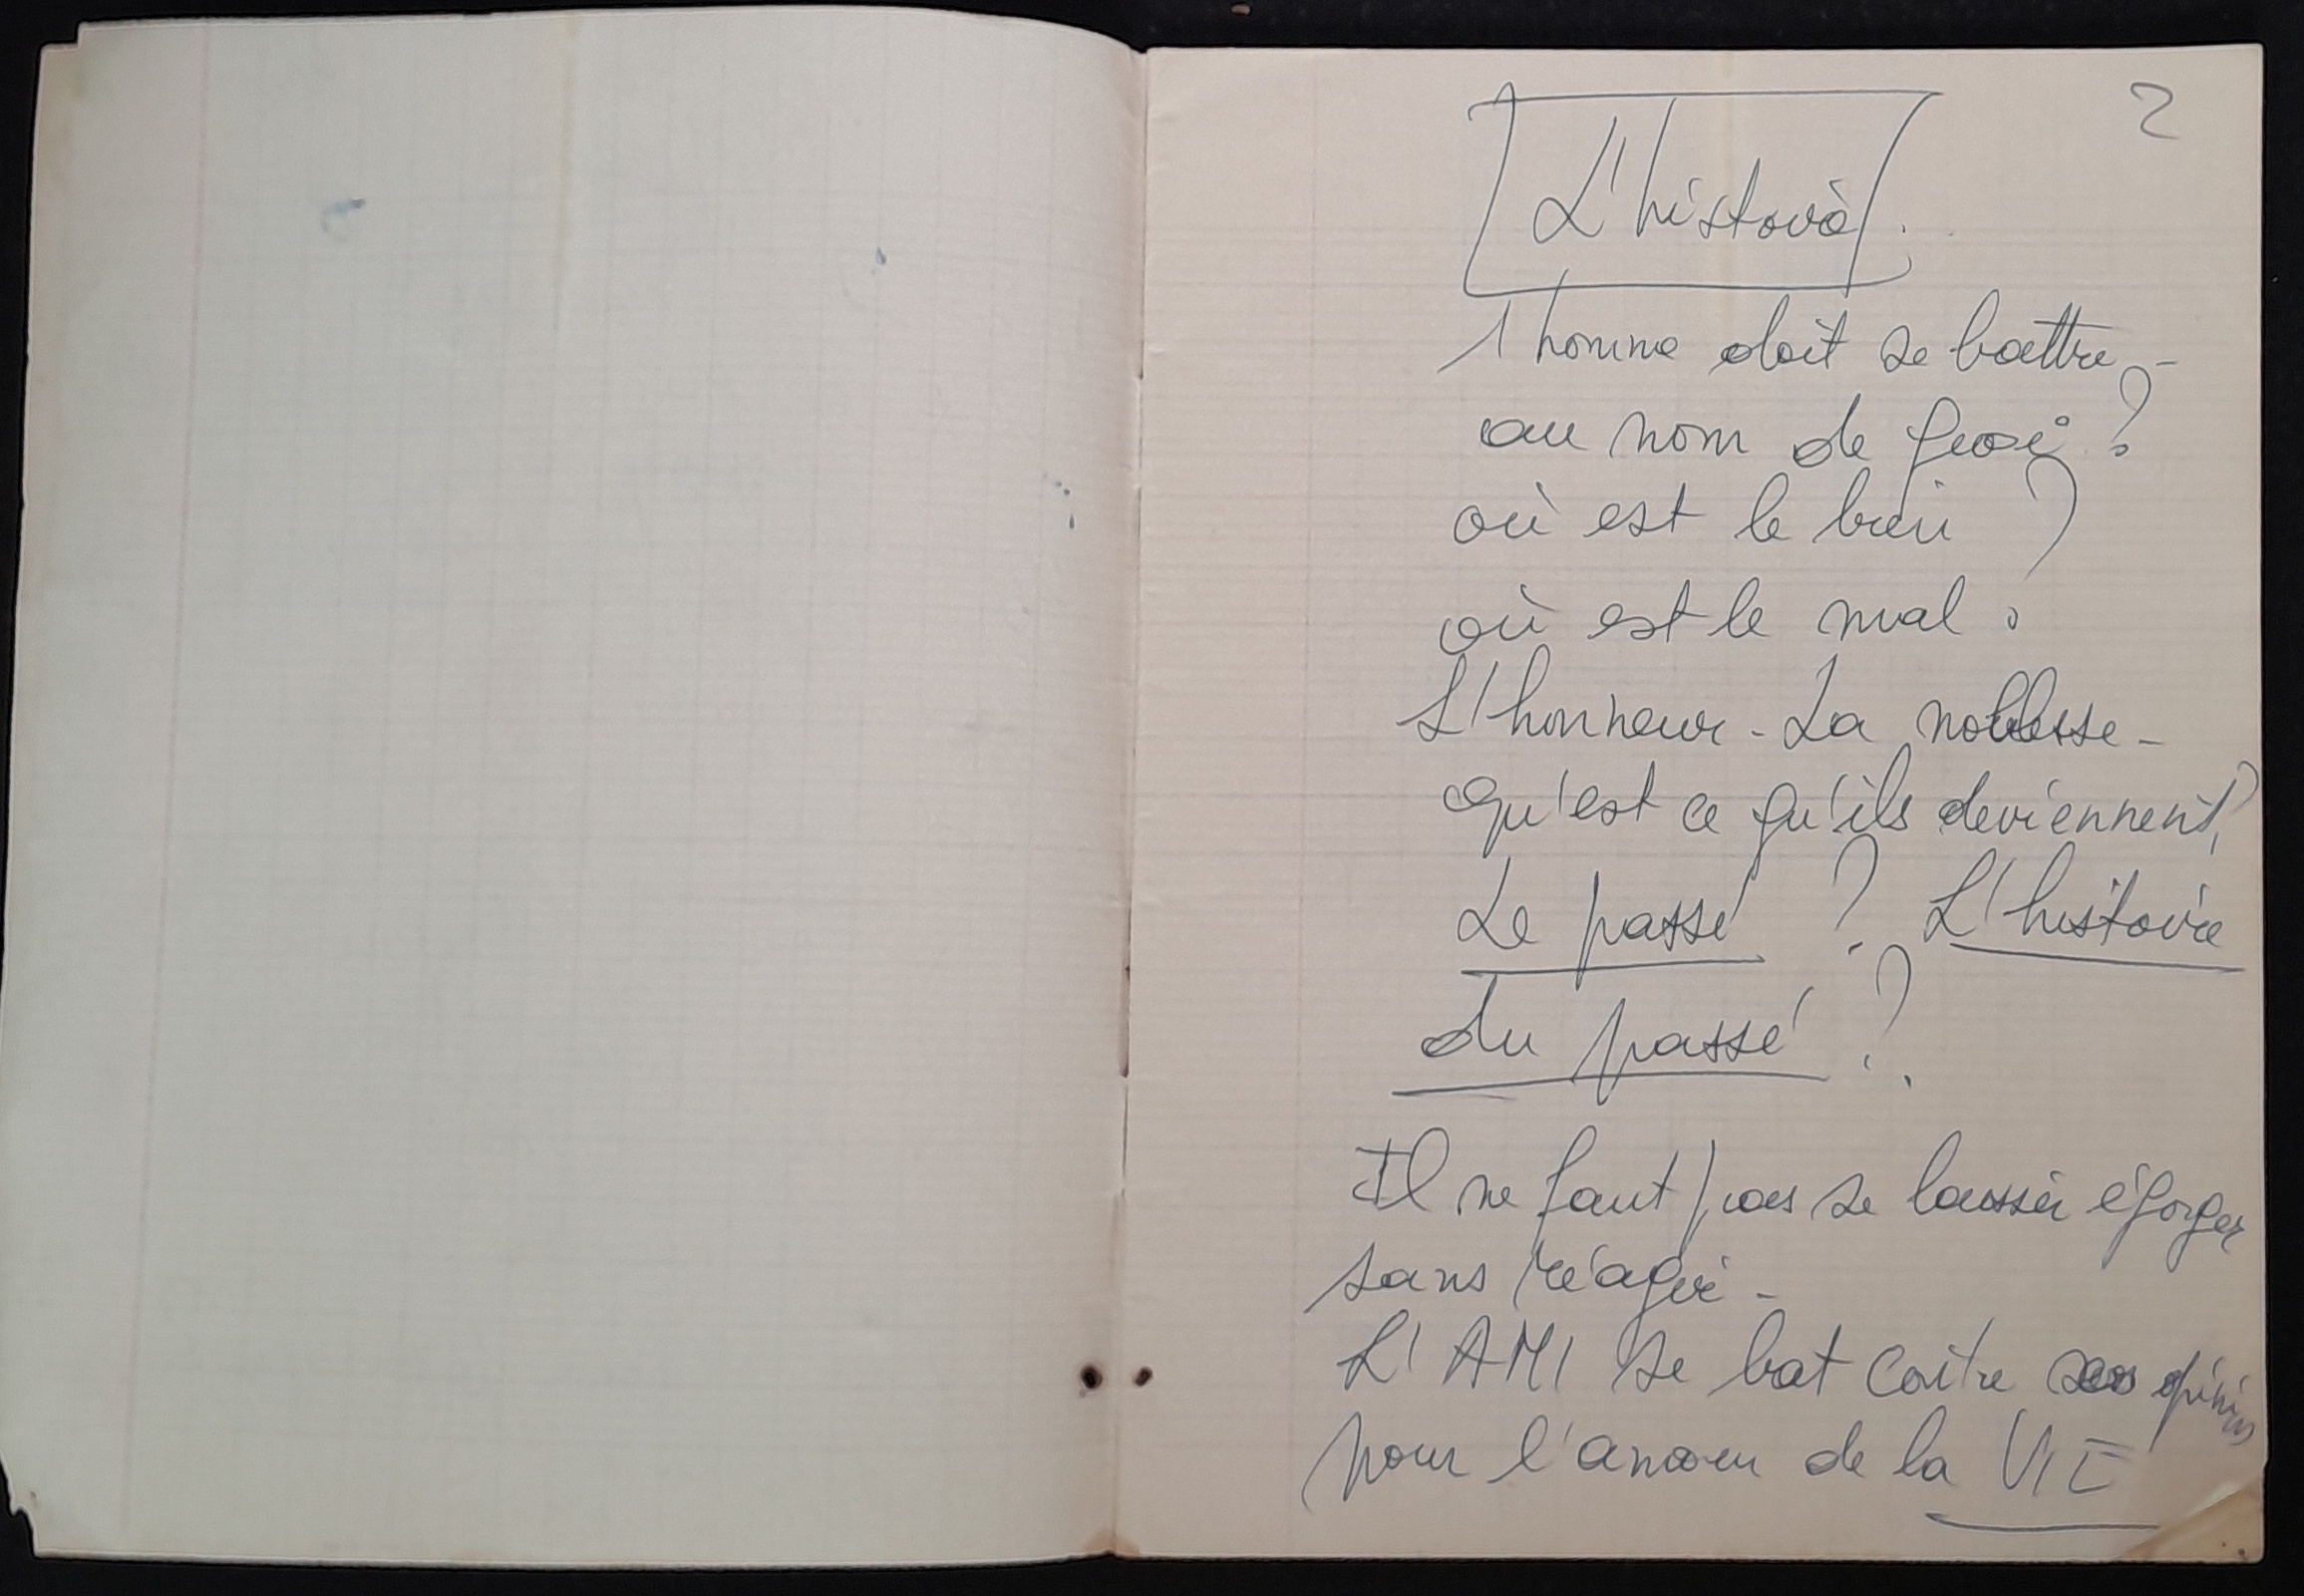 2
L'histoire.
l'homme doit se battre -
au nom de quoi ?
où est le bien ?
où est le mal ?
L'honneur - La noblesse -
qu'est ce qu'ils deviennent ?
Le passé ? L'histoire
du passé ?
Il ne faut pas se laisser égorger
sans réagir -
L'AMI se bat contre ses opinions
pour l'amour de la VIE